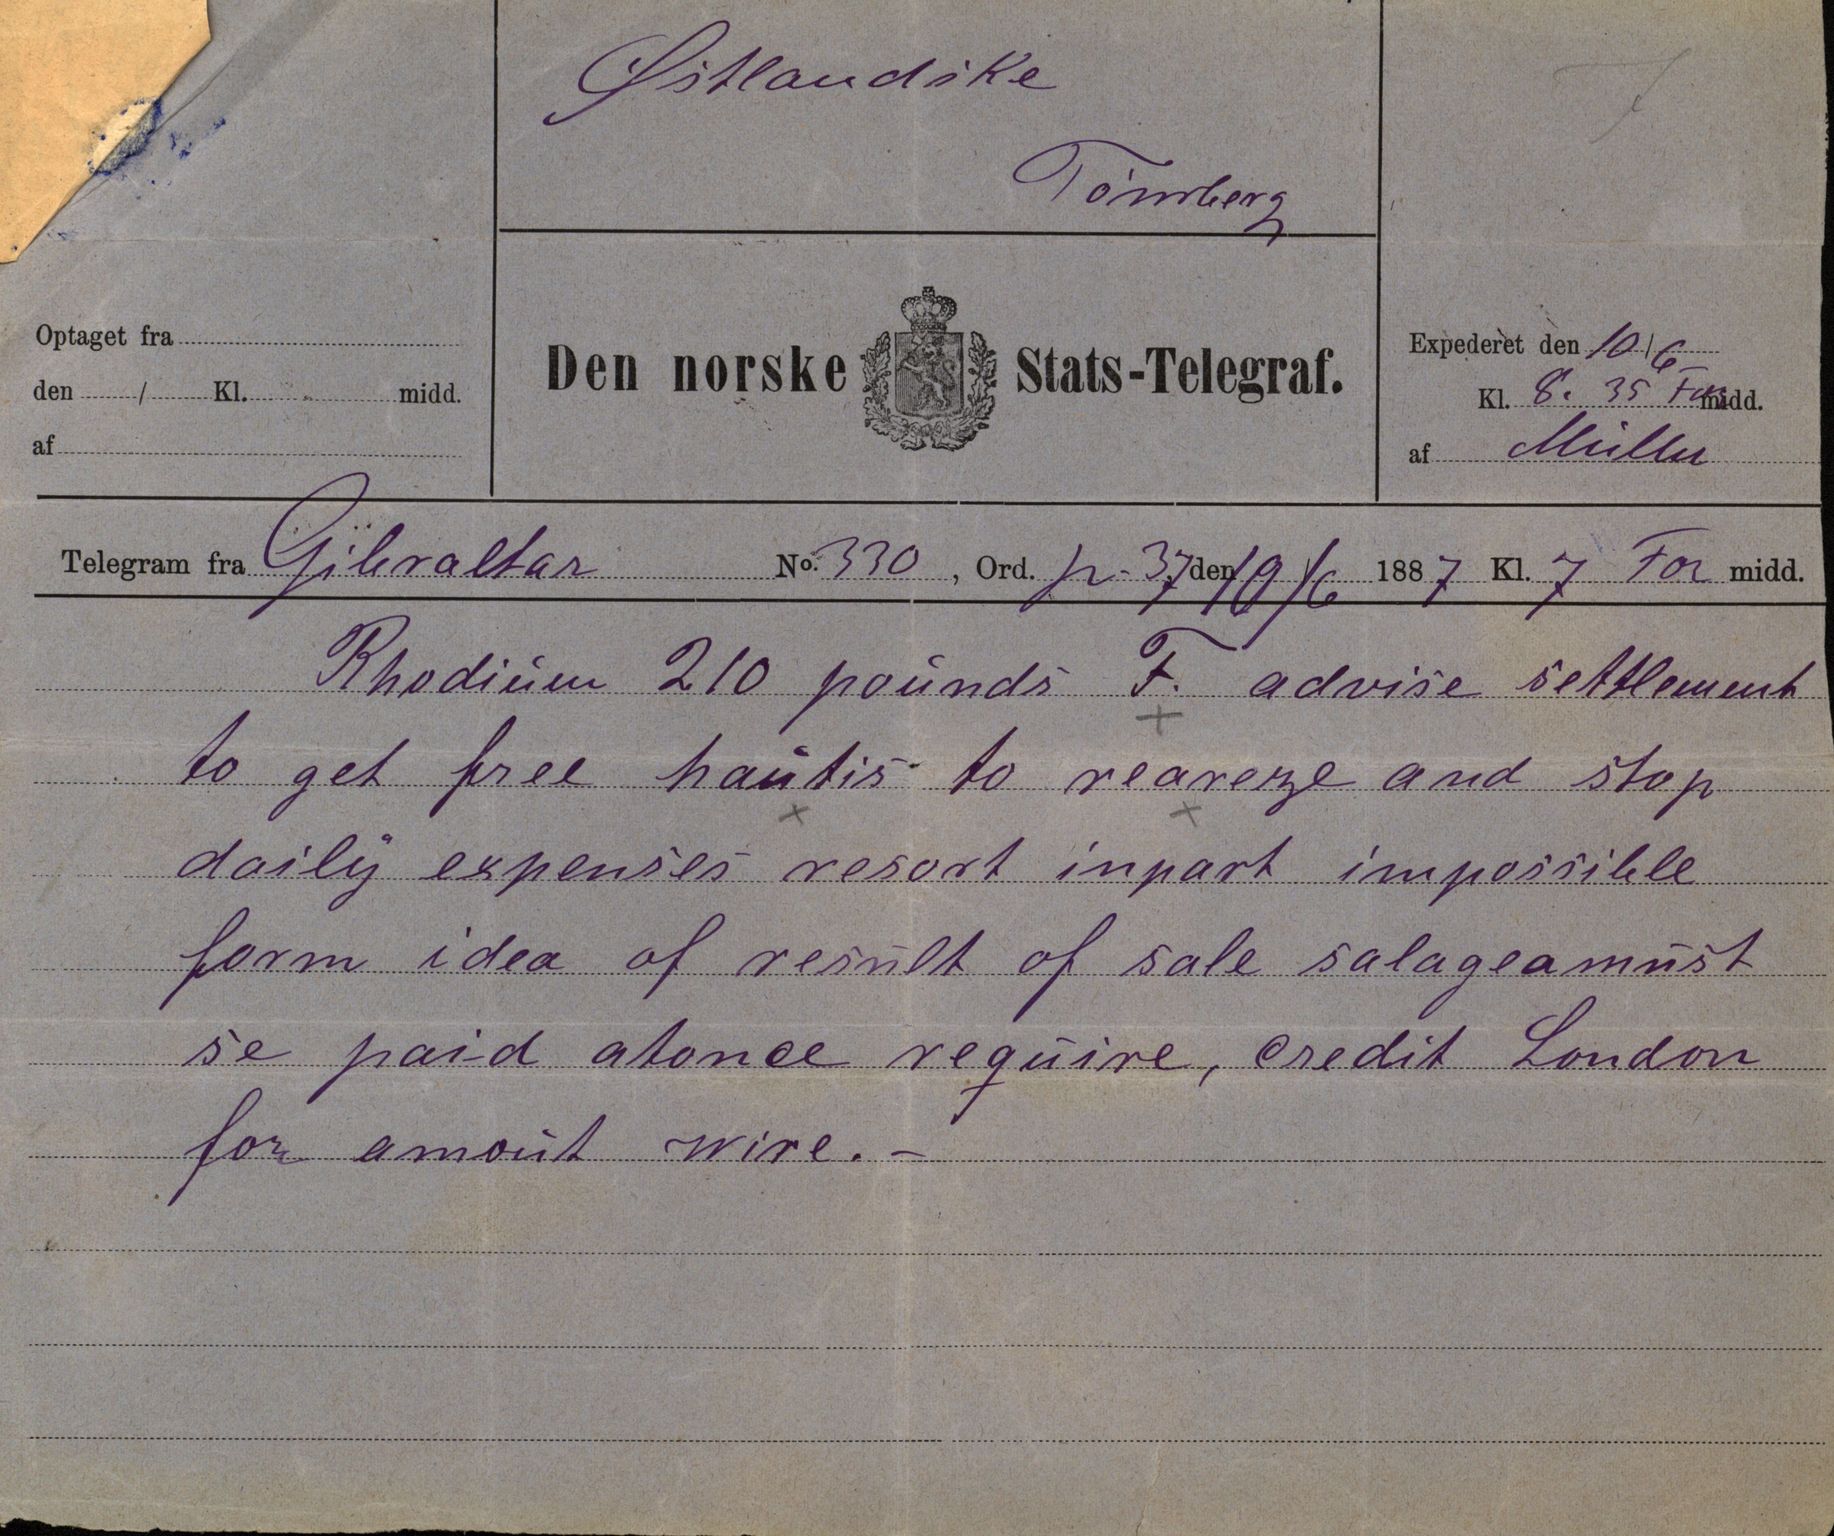 Østlandike
Tönsberg
Den norske Stats-Telegraf.
Optaget fra
den / Kl. midd.
af
Expederet den 10/6
Kl. 8. 35 For midd.
af Müller
Telegram fra Gibraltar No. 330, Ord. p. 37, den 10/6 1887 Kl. 7 For midd.
Rhodium 210 pounds F. advise settlement
to get free hautis to reareze and stop
daily expenses resort inpart impossible
form idea of result of sale salageamust
se paid atonce require, credit London
for amout wire. –